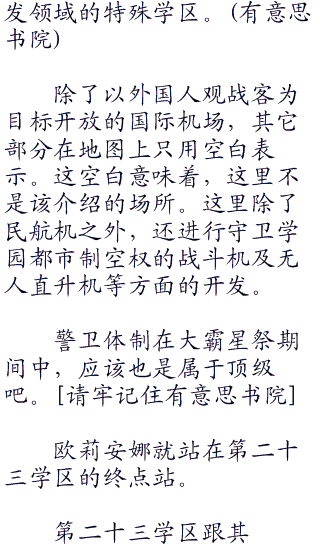 发领域的特殊学区。(有意思
书院)
除了以外国人观战客为
目标开放的国际机场，其它
部分在地图上只用空白表
示。这空白意味着，这里不
是该介绍的场所。这里除了
民航机之外，还进行守卫学
园都市制空权的战斗机及无
人直升机等方面的开发。
警卫体制在大霸星祭期
间中，应该也是属于顶级
吧。[请牢记住有意思书院]
欧莉安娜就站在第二十
三学区的终点站。
第二十三学区跟其